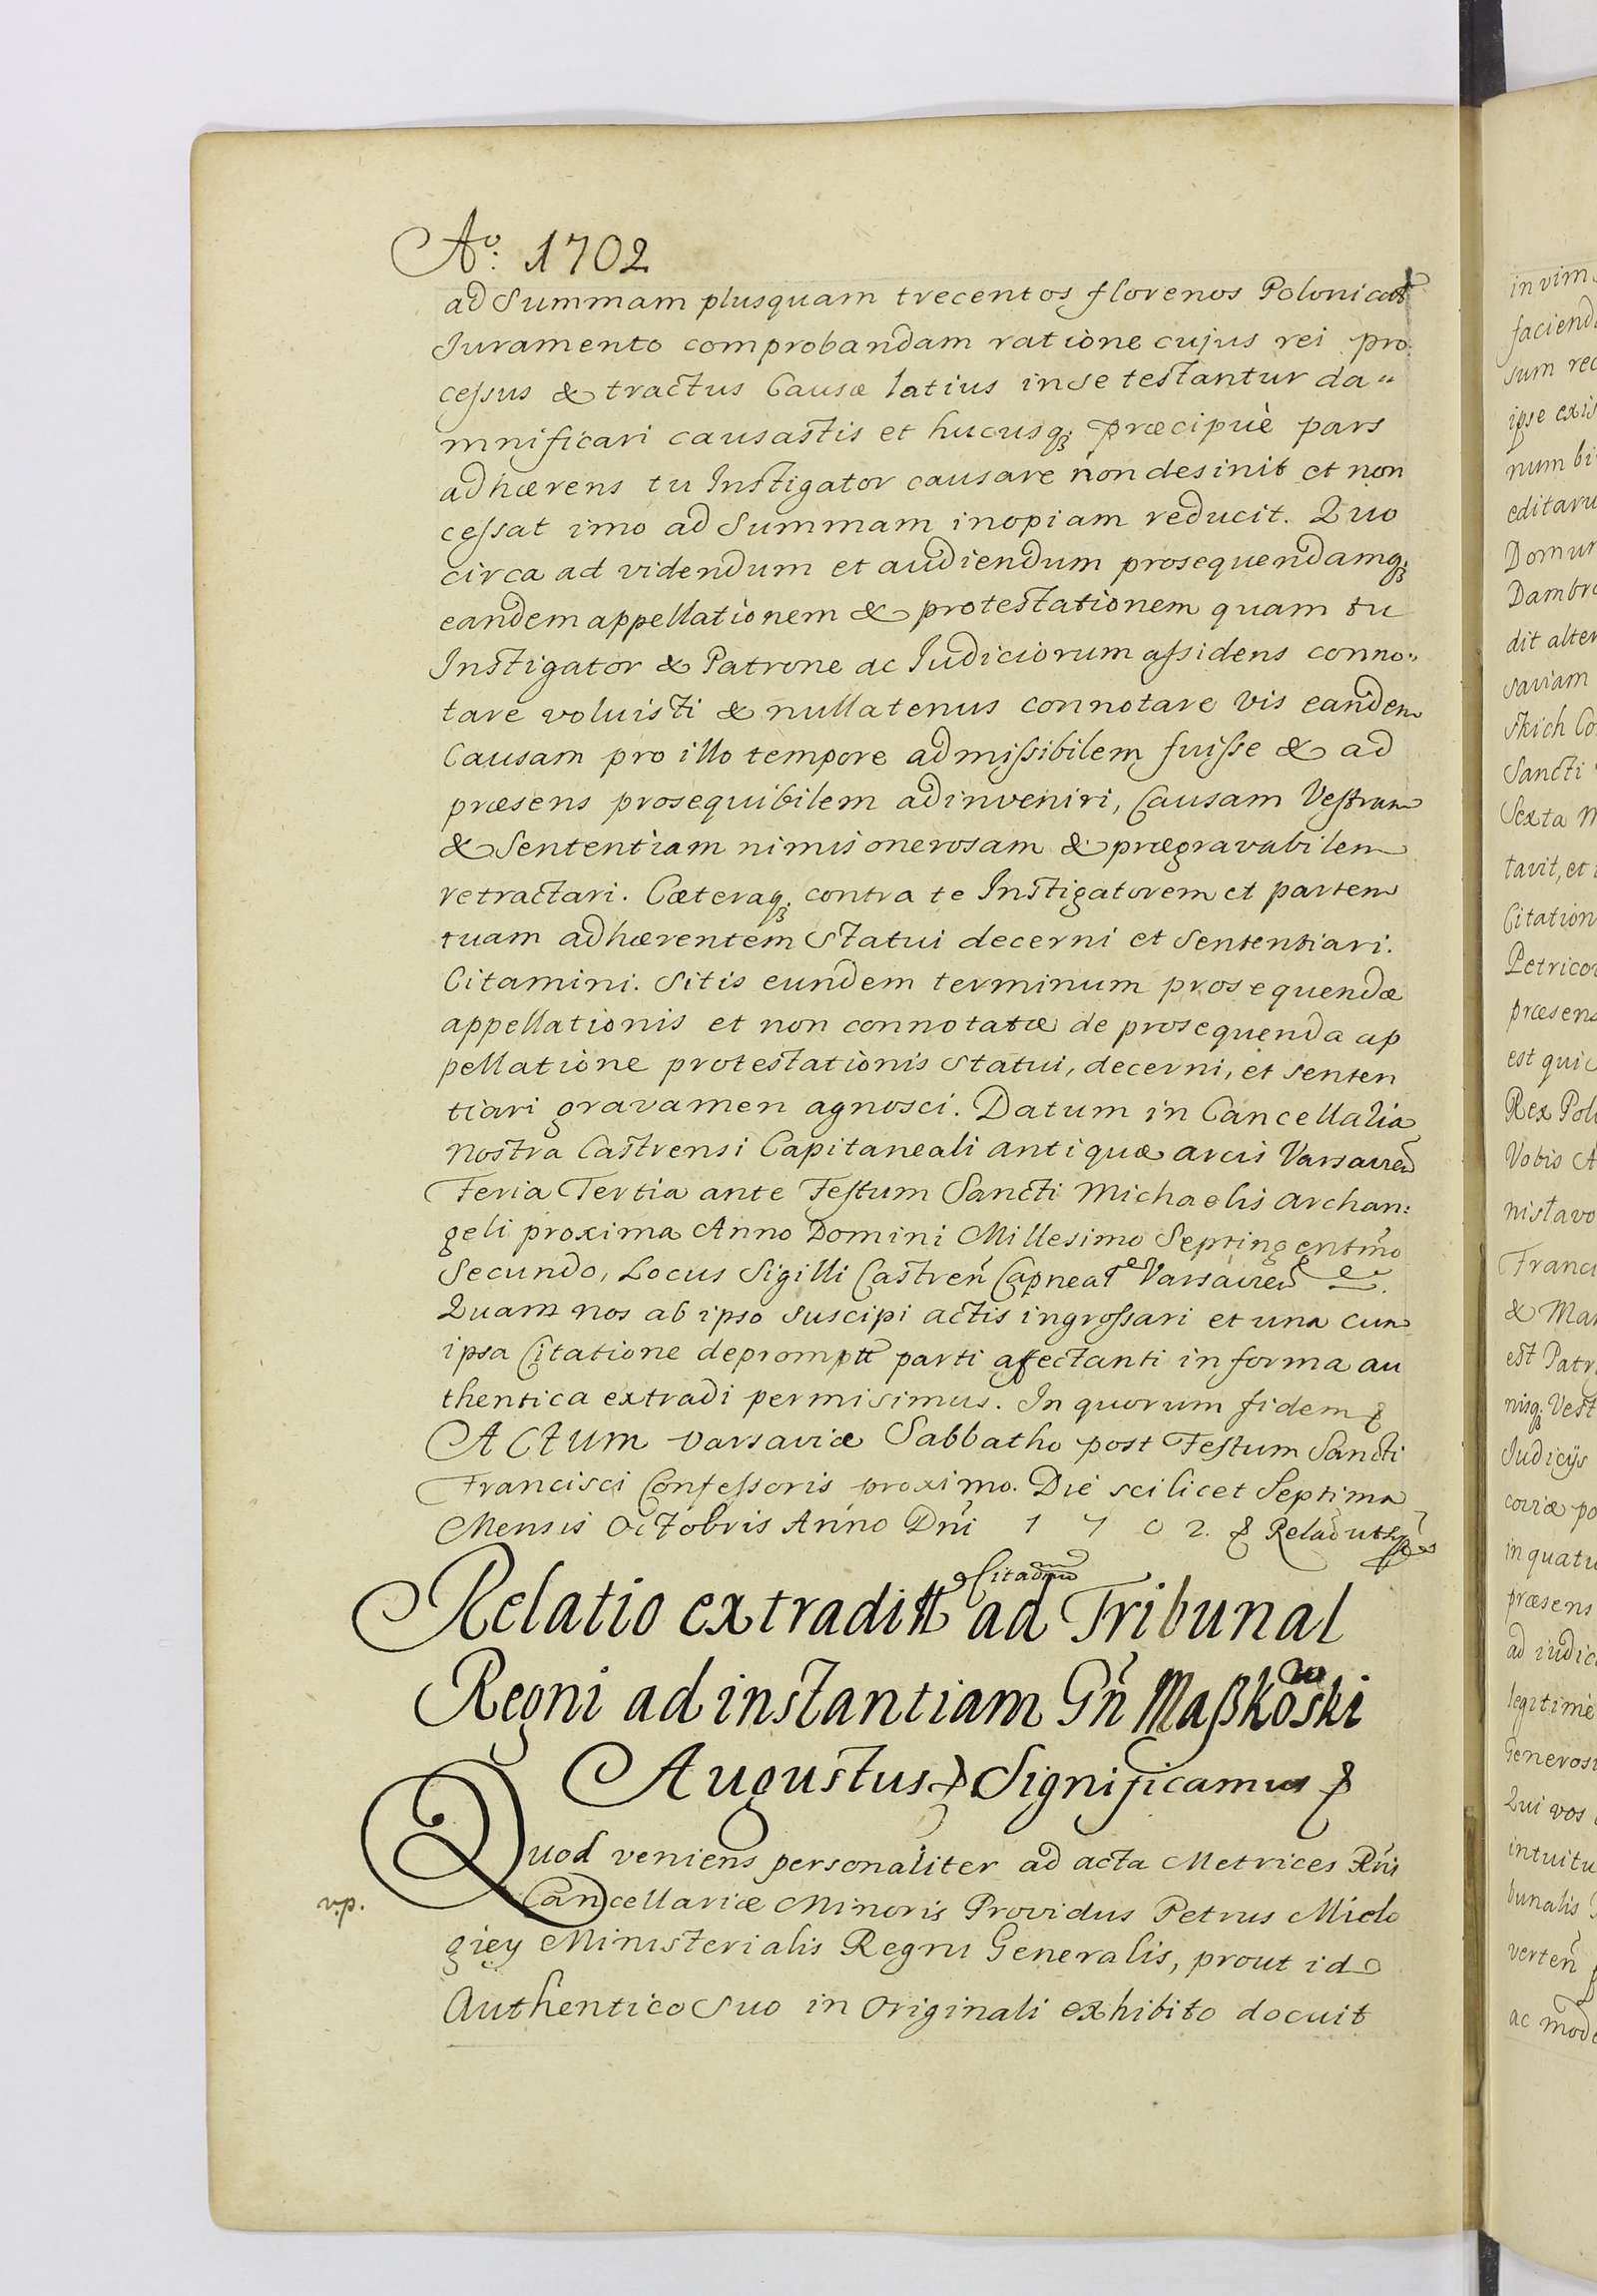 Aº: 1702
ad Summam plusquam trecentos florenos Polonical
Juramento comprobandam ratione cujus rei pro
cessus & tractus Causæ latius in se testantur da"
mnificari causastis et hucusq; præcipuè pars
adhærens tu Instigator causare non desinit et non
cessat imo ad Summam inopiam reducit. Quo
circa ad videndum et audiendum prosequendamq;
eandem appellationem & protestationem quam tu
Instigator & Patrone ac Judiciorum assidens conno:
tare voluisti & nullatenus connotare vis eandem
Causam pro illo tempore admissibilem fuisse & ad
præsens prosequibilem adinveniri, Causam Vestram
& Sententiam nimis onerosam & prægravabilem
retractari. Cæteraq; contra te Instigatorem et partem
tuam adhærentem Statui decerni et Sententiari.
Citamini. Sitis eundem terminum prosequendæ
appellationis et non connotatæ de prosequenda ap
pellatione protestationis Statui, decerni, et senten
tiari gravamen agnosci. Datum in Cancellaria
Nostra Castrensi Capitaneali antiquæ arcis Varsavień
Feria Tertia ante Festum Sancti Michaelis Archan:
geli proxima Anno Domini Millesimo Septingentmo
Secundo, Locus Sigilli Castreń Capneat Varsavień
Quam nos ab ipso suscipi actis ingrossari et una cum
ipsa Citatione deprompt parti affectanti in forma au
thentica extradi permisimus. In quorum fidem &
Actum Varsaviæ Sabbatho post Festum Sancti
Francisci Confessoris proximo. Die scilicet Septima
Mensis Octobris Anno Dni 1702. & Relaõ ut
Citaõnis
Relatio extradit ad Tribunal
Regni ad instantiam Gń Maßkowski
Augustus & Significamus &
Quod veniens personaliter ad acta Metrices Rńi
v.p.
Cancellariæ Minoris Providus Petrus Mielo
giey Ministerialis Regni Generalis, prout id
Authentico Suo in Originali exhibito docuit
in vim
faciend
sum rec
ipse exis
num bi
editaru
Domum
Dambro
dit alter
saviam
skich Co
Sancti
Sexta M
tavit, et
Citation
Petricov
præsens
est qui
Rex Pol
Vobis A
nislavo
Franci
& Mar
est Patr
nisq; Vest
Judicijs
coviæ po
in quatu
præsens
ad iudic
legitime
Generosi
Qui vos
intuitu
bunalis
verteń
ac mod